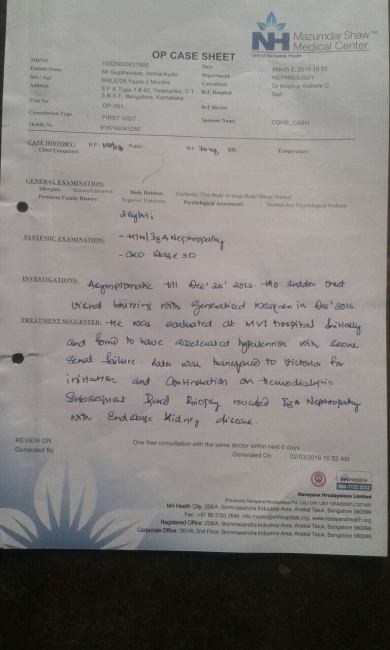 NH Mazumdar Shaw™
Medical Center
Unit of Narayana Health
OP CASE SHEET
MRNO 10020000437885
Patient Name Mr Guptheswar, Mohankudo
Sex / Age MALE/28 Years 2 Months
Address S F A Type 1 # 42, Yelahanka, S T
S.B.S.F, Bangalore, Karnataka
Visit No OP-001
Consultation Type FIRST VISIT
Mobile No 918746043260
Date March 2, 2016 10:52
Department NEPHROLOGY
Consultant Dr Krishna Kishore C
Ref. Hospital Self
Ref. Doctor
Sponsor Name CGHS_CASH
CASE HISTORY: B.P: Pulse: Wt: 76 kg RR: Temperature:
Chief Complaint:
GENERAL EXAMINATION:
Allergies: Known/Unknown Body Habitus: Cachexic/Thin Built/Average Built/Obese/Normal
Pertinent Family History: Negative/Unknown Psychological Assessment: Normal/Any Psychological Problem
28y/M:
SYSTEMIC EXAMINATION: - HTN/IgA Nephropathy
- CKD Stage 5D
INVESTIGATIONS: Asymptomatic till Dec' 25' 2015. H/o sudden onset
visual blurring with generalised weakness in Dec' 2015.
TREATMENT SUGGESTED: He was evaluated at MVJ hospital initially
and found to have accelerated hypertension with severe
renal failure. Later was transferred to Victoria for
initiation and continuation on hemodialysis.
Subsequent Renal Biopsy revealed IgA Nephropathy
with End stage kidney disease.
REVIEW ON One free consultation with the same doctor within next 6 days
Generated By Generated On 02/03/2016 10:52 AM
NH helpline
Narayana Hrudayalaya Limited
NH Health City, 258/A, Bommasandra Industrial Area, Anekal Taluk, Bangalore 560099
Registered Office: 258/A, Bommasandra Industrial Area, Anekal Taluk, Bangalore 560099
Corporate Office: 261/A, 2nd Floor, Bommasandra Industrial Area, Anekal Taluk, Bangalore 560099